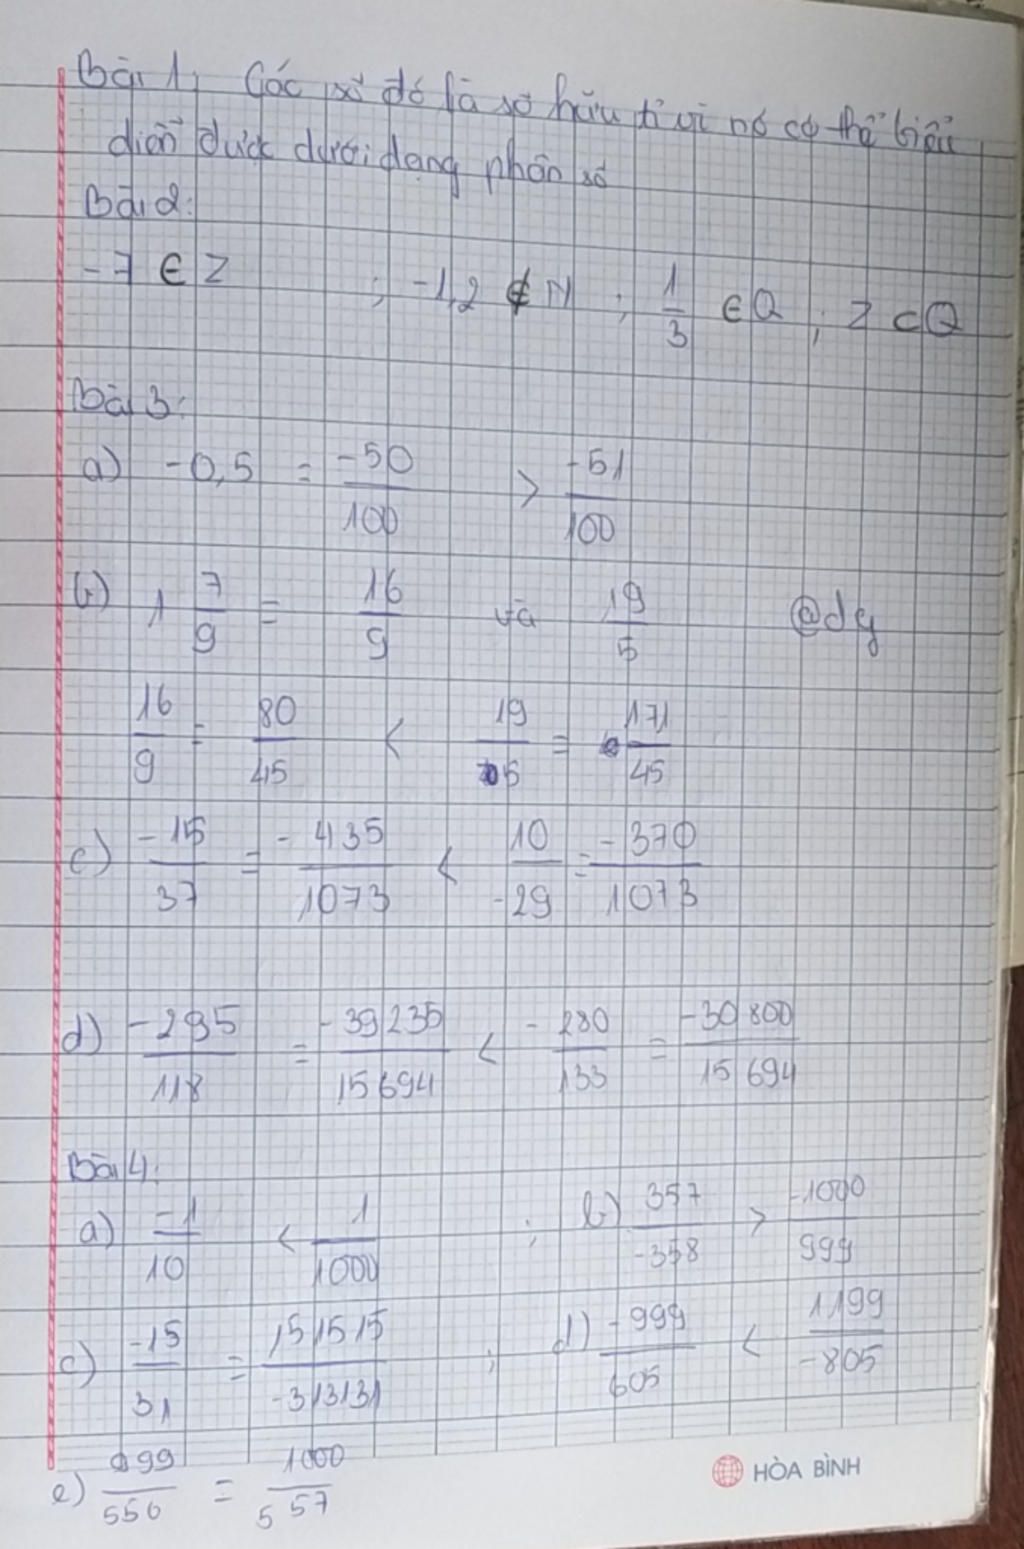 Bài 1: Các số đó là số hữu tỉ vì nó có thể biểu
diễn được dưới dạng phân số
Bài 2:
-7 ∈ Z ; -1,2 ∉ N ; 1/3 ∈ Q ; Z ⊂ Q
Bài 3:
a) -0,5 = -50/100 > -51/100
b) 1 7/9 = 16/9 và 19/5 @dy
16/9 = 80/45 < 19/5 = 171/45
c) -15/37 = -435/1073 < 10/-29 = -370/1073
d) -295/118 = -39235/15694 < -280/133 = -30800/15694
Bài 4:
a) -1/10 < 1/1000 ; b) 357/-358 > -1000/999
c) -15/31 = 151515/-313131 ; d) -999/605 < 1199/-805
e) 999/556 = 1000/557
HÒA BÌNH